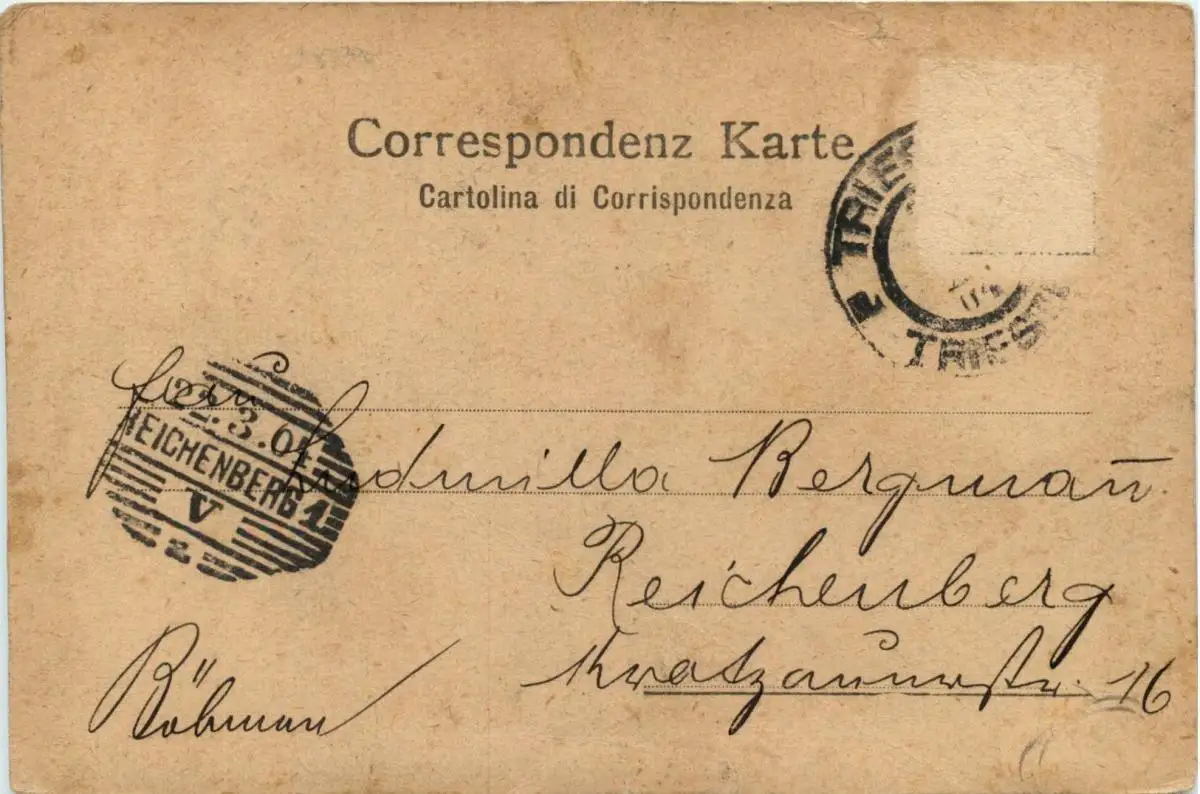 Correspondenz Karte
Cartolina di Corrispondenza
TRIES
TRIEST
04
22.3.0
EICHENBERG 1
V
Ludmilla Bergmañ
Reichenberg
Kratzauerstr. 16
Böhmen